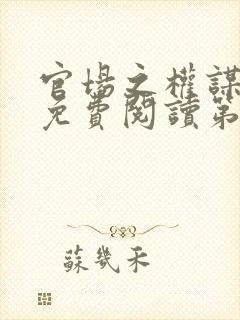 官場之權謀
免費閱讀第
蘇幾禾